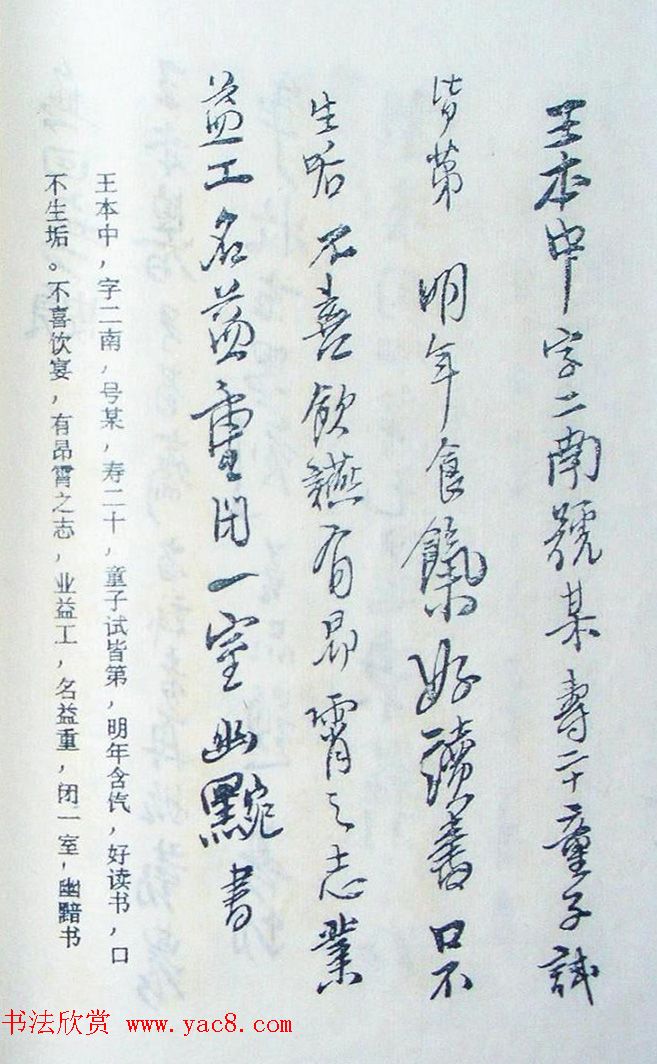 王本中字二南號某壽二十童子試
皆第 明年食餼好讀書口不
生垢不喜飲讌有昂霄之志業
益工名益重闭一室幽黦書
王本中，字二南，号某，寿二十，童子试皆第，明年含饩，好读书，口
不生垢。不喜饮宴，有昂霄之志，业益工，名益重，闭一室，幽黯书
书法欣赏 www.yac8.com